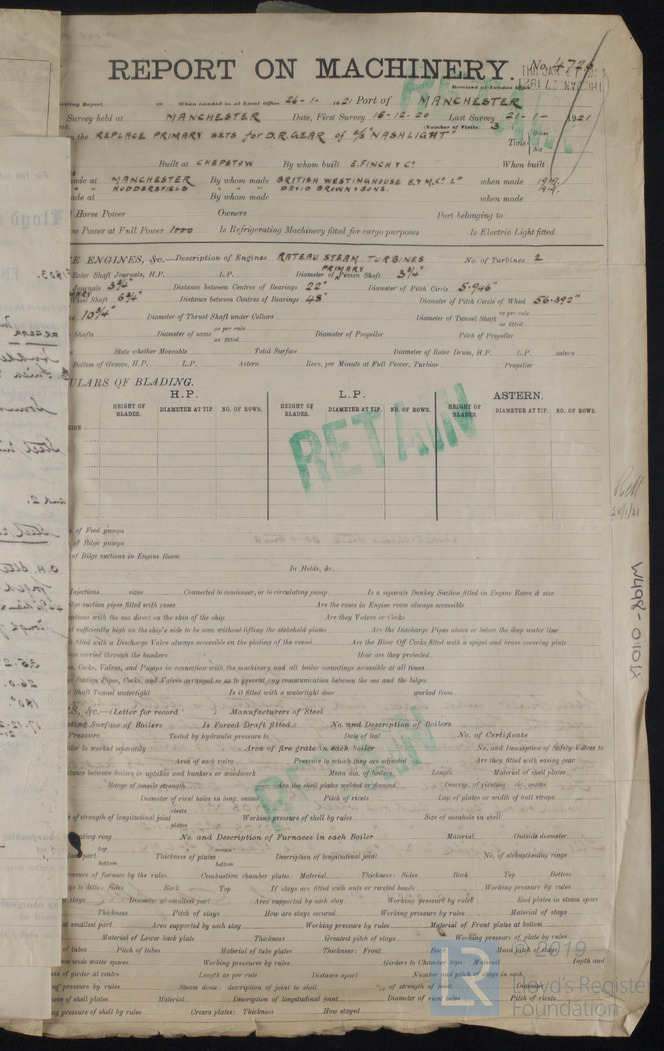 REPORT ON MACHINERY. No. 4725
Received at London Office
THU. JAN. 27 1921
Writing Report 19 When handed in at Local Office 26-1- 1921 Port of MANCHESTER
Survey held at MANCHESTER Date, First Survey 16-12-20 Last Survey 21-1- 1921
(Number of Visits 3
on the REPLACE PRIMARY SETS for D.R. GEAR of S/S "NASHLIGHT" Tons Gross Net
Built at CHEPSTOW By whom built E. FINCH & Co. When built
made at MANCHESTER By whom made BRITISH WESTINGHOUSE E. & M. Co. Ld when made 1919.
" " HUDDERSFIELD " " " DAVID BROWN & SONS. 1919.
made at By whom made when made
Horse Power Owners Port belonging to
Power at Full Power 1000 Is Refrigerating Machinery fitted for cargo purposes Is Electric Light fitted
ENGINES, &c.—Description of Engines RATEAU STEAM TURBINES No. of Turbines 2
Rotor Shaft Journals, H.P. L.P. Diameter of Pinion Shaft PRIMARY 3¾"
Journals 3¾" Distance between Centres of Bearings 22" Diameter of Pitch Circle 5.946"
Wheel Shaft 6¾" Distance between Centres of Bearings 48" Diameter of Pitch Circle of Wheel 56.392"
10¾" Diameter of Thrust Shaft under Collars Diameter of Tunnel Shaft as per rule as fitted
Shafts Diameter of same as per rule as fitted Diameter of Propeller Pitch of Propeller
State whether Moveable Total Surface Diameter of Rotor Drum, H.P. L.P. astern
Bottom of Groove, H.P. L.P. Astern Revs. per Minute at Full Power, Turbine Propeller
ULARS OF BLADING.
H.P. L.P. ASTERN.
HEIGHT OF BLADES. DIAMETER AT TIP. NO. OF ROWS. HEIGHT OF BLADES. DIAMETER AT TIP. NO. OF ROWS. HEIGHT OF BLADES. DIAMETER AT TIP. NO. OF ROWS.
RETAIN
of Feed pumps
of Bilge pumps
of Bilge suctions in Engine Room
In Holds, &c.
Injections sizes Connected to condenser, or to circulating pump Is a separate Donkey Suction fitted in Engine Room & size
suction pipes fitted with roses Are the roses in Engine room always accessible
with the sea direct on the skin of the ship Are they Valves or Cocks
sufficiently high on the ship's side to be seen without lifting the stokehold plates Are the Discharge Pipes above or below the deep water line
fitted with a Discharge Valve always accessible on the plating of the vessel Are the Blow Off Cocks fitted with a spigot and brass covering plate
carried through the bunkers How are they protected
Cocks, Valves, and Pumps in connection with the machinery and all boiler mountings accessible at all times
Suction Pipes, Cocks, and Valves arranged so as to prevent any communication between the sea and the bilges
Shaft Tunnel watertight Is it fitted with a watertight door worked from
S, &c.—(Letter for record Manufacturers of Steel
Surface of Boilers Is Forced Draft fitted No. and Description of Boilers
Pressure Tested by hydraulic pressure to Date of test No. of Certificate
to be worked separately Area of fire grate in each boiler No. and Description of Safety Valves to
Area of each valve Pressure to which they are adjusted Are they fitted with easing gear
between boilers or uptakes and bunkers or woodwork Mean dia. of boilers Length Material of shell plates
Range of tensile strength Are the shell plates welded or flanged Descrip. of riveting: cir. seams
Diameter of rivet holes in long. seams Pitch of rivets Lap of plates or width of butt straps
of strength of longitudinal joint rivets plates Working pressure of shell by rules Size of manhole in shell
ring No. and Description of Furnaces in each Boiler Material Outside diameter
part top bottom Thickness of plates crown bottom Description of longitudinal joint No. of strengthening rings
pressure of furnace by the rules Combustion chamber plates: Material Thickness: Sides Back Top Bottom
stays to ditto: Sides Back Top If stays are fitted with nuts or riveted heads Working pressure by rules
stays Diameter at smallest part Area supported by each stay Working pressure by rules End plates in steam space
Thickness Pitch of stays How are stays secured Working pressure by rules Material of stays
smallest part Area supported by each stay Working pressure by rules Material of Front plates at bottom
Material of Lower back plate Thickness Greatest pitch of stays Working pressure of plate by rules
of tubes Pitch of tubes Material of tube plates Thickness: Front Back Mean pitch of stays
wide water spaces Working pressure by rules Girders to Chamber tops: Material Depth and
of girder at centre Length as per rule Distance apart Number and pitch of stays in each
pressure by rules Steam dome: description of joint to shell % of strength of joint Diameter
of shell plates Material Description of longitudinal joint Diameter of rivet holes Pitch of rivets
pressure of shell by rules Crown plates: Thickness How stayed
RETAIN
W498-0101
LR
© 2019
Lloyd's Register
Foundation